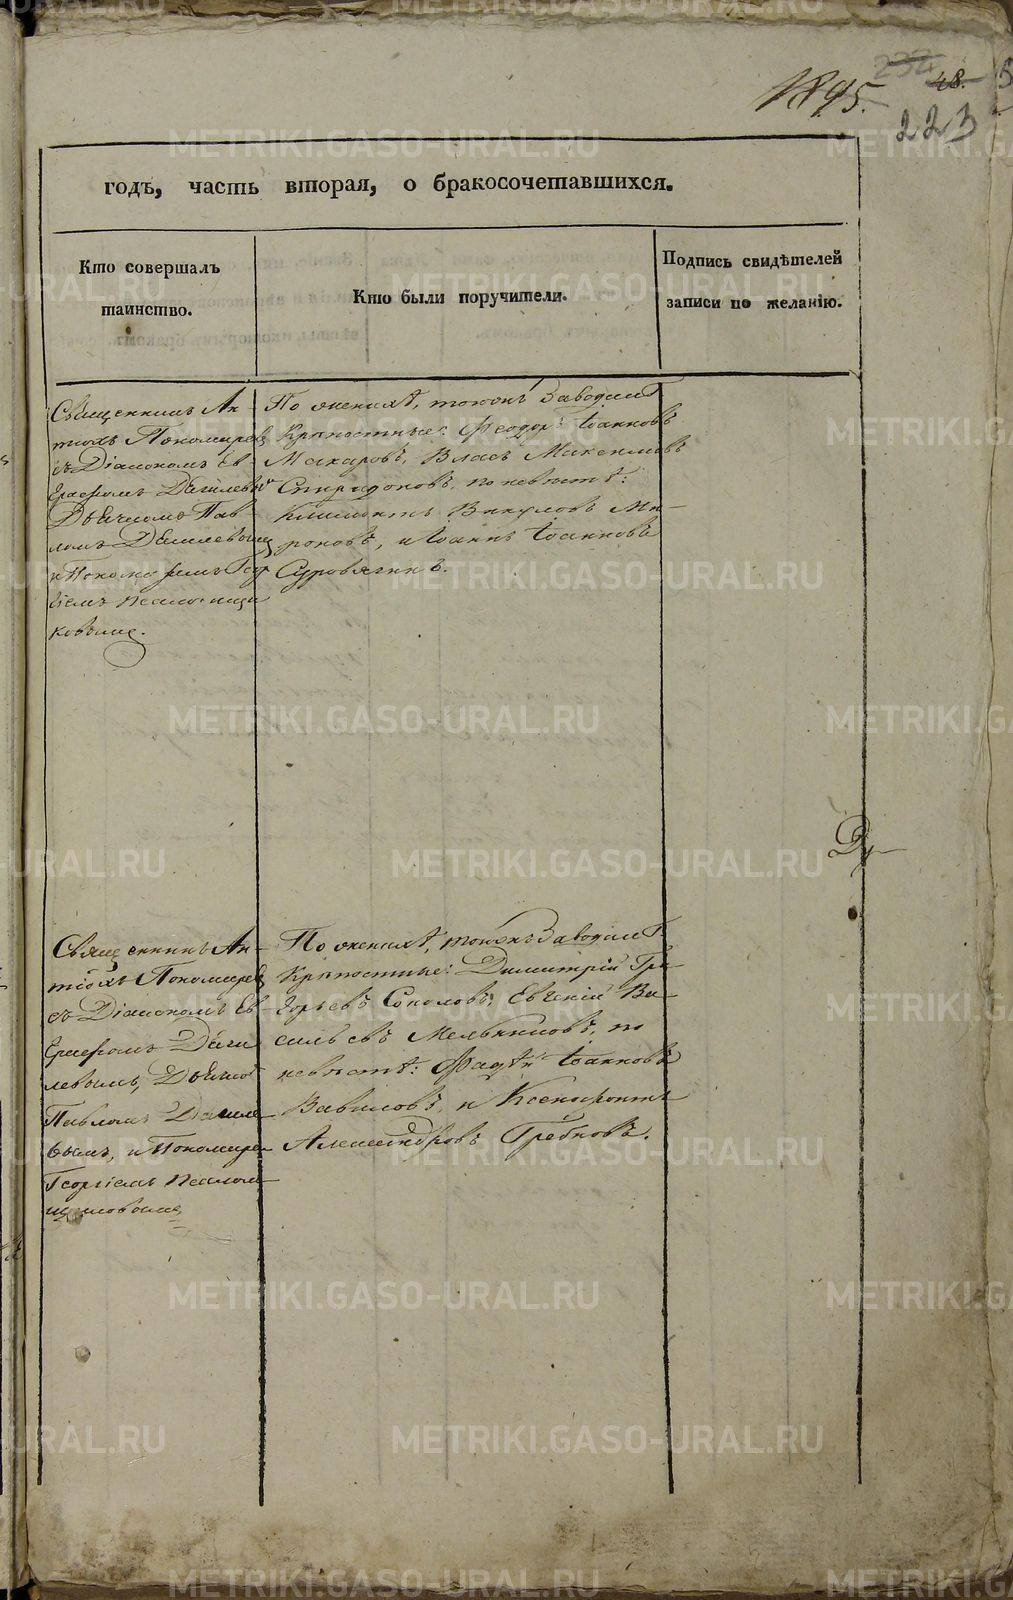 1845.
232
48.
223
годъ, часть вторая, о бракосочетавшихся.
Кто совершалъ
таинство.
Кто были поручители.
Подпись свидѣтелей
записи по желанію.
Священникъ Ан-
тіохъ Пономаревъ
съ Діакономъ Ев-
графомъ
Дьячкомъ Пав-
ломъ
и Пономаремъ Геор
гіемъ Псаломщи
ковымъ.
По женихѣ, тогожъ Завода
Крѣпостные: Ѳеодоръ Іоанновъ
Макаровъ, Власъ Максимовъ
Спиридоновъ, по невѣстѣ:
Климентъ Викуловъ Ми-
роновъ, и Іоаннъ Іоанновъ
Суровягинъ.
Священникъ Ан-
тіохъ Пономаревъ
съ Діакономъ Ев-
графомъ
Дьячко
Павломъ
вымъ, и Пономаре
Георгіемъ Псалом
щиковымъ
По женихѣ, тогожъ Завода
Крѣпостные: Димитрій Гри
горьевъ Соколовъ, Евгеній Ва-
сильевъ Мельниковъ, по
невѣстѣ: Фадѣй Іоанновъ
Вавиловъ, и Ксенофонтъ
Александровъ Гребновъ.
METRIKI.GASO-URAL.RU